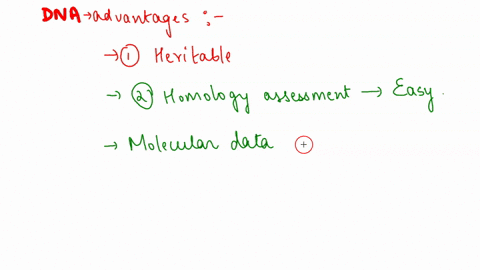 DNA → advantages :-
→ ① Heritable
→ ② Homology assessment → Easy.
→ Molecular data +